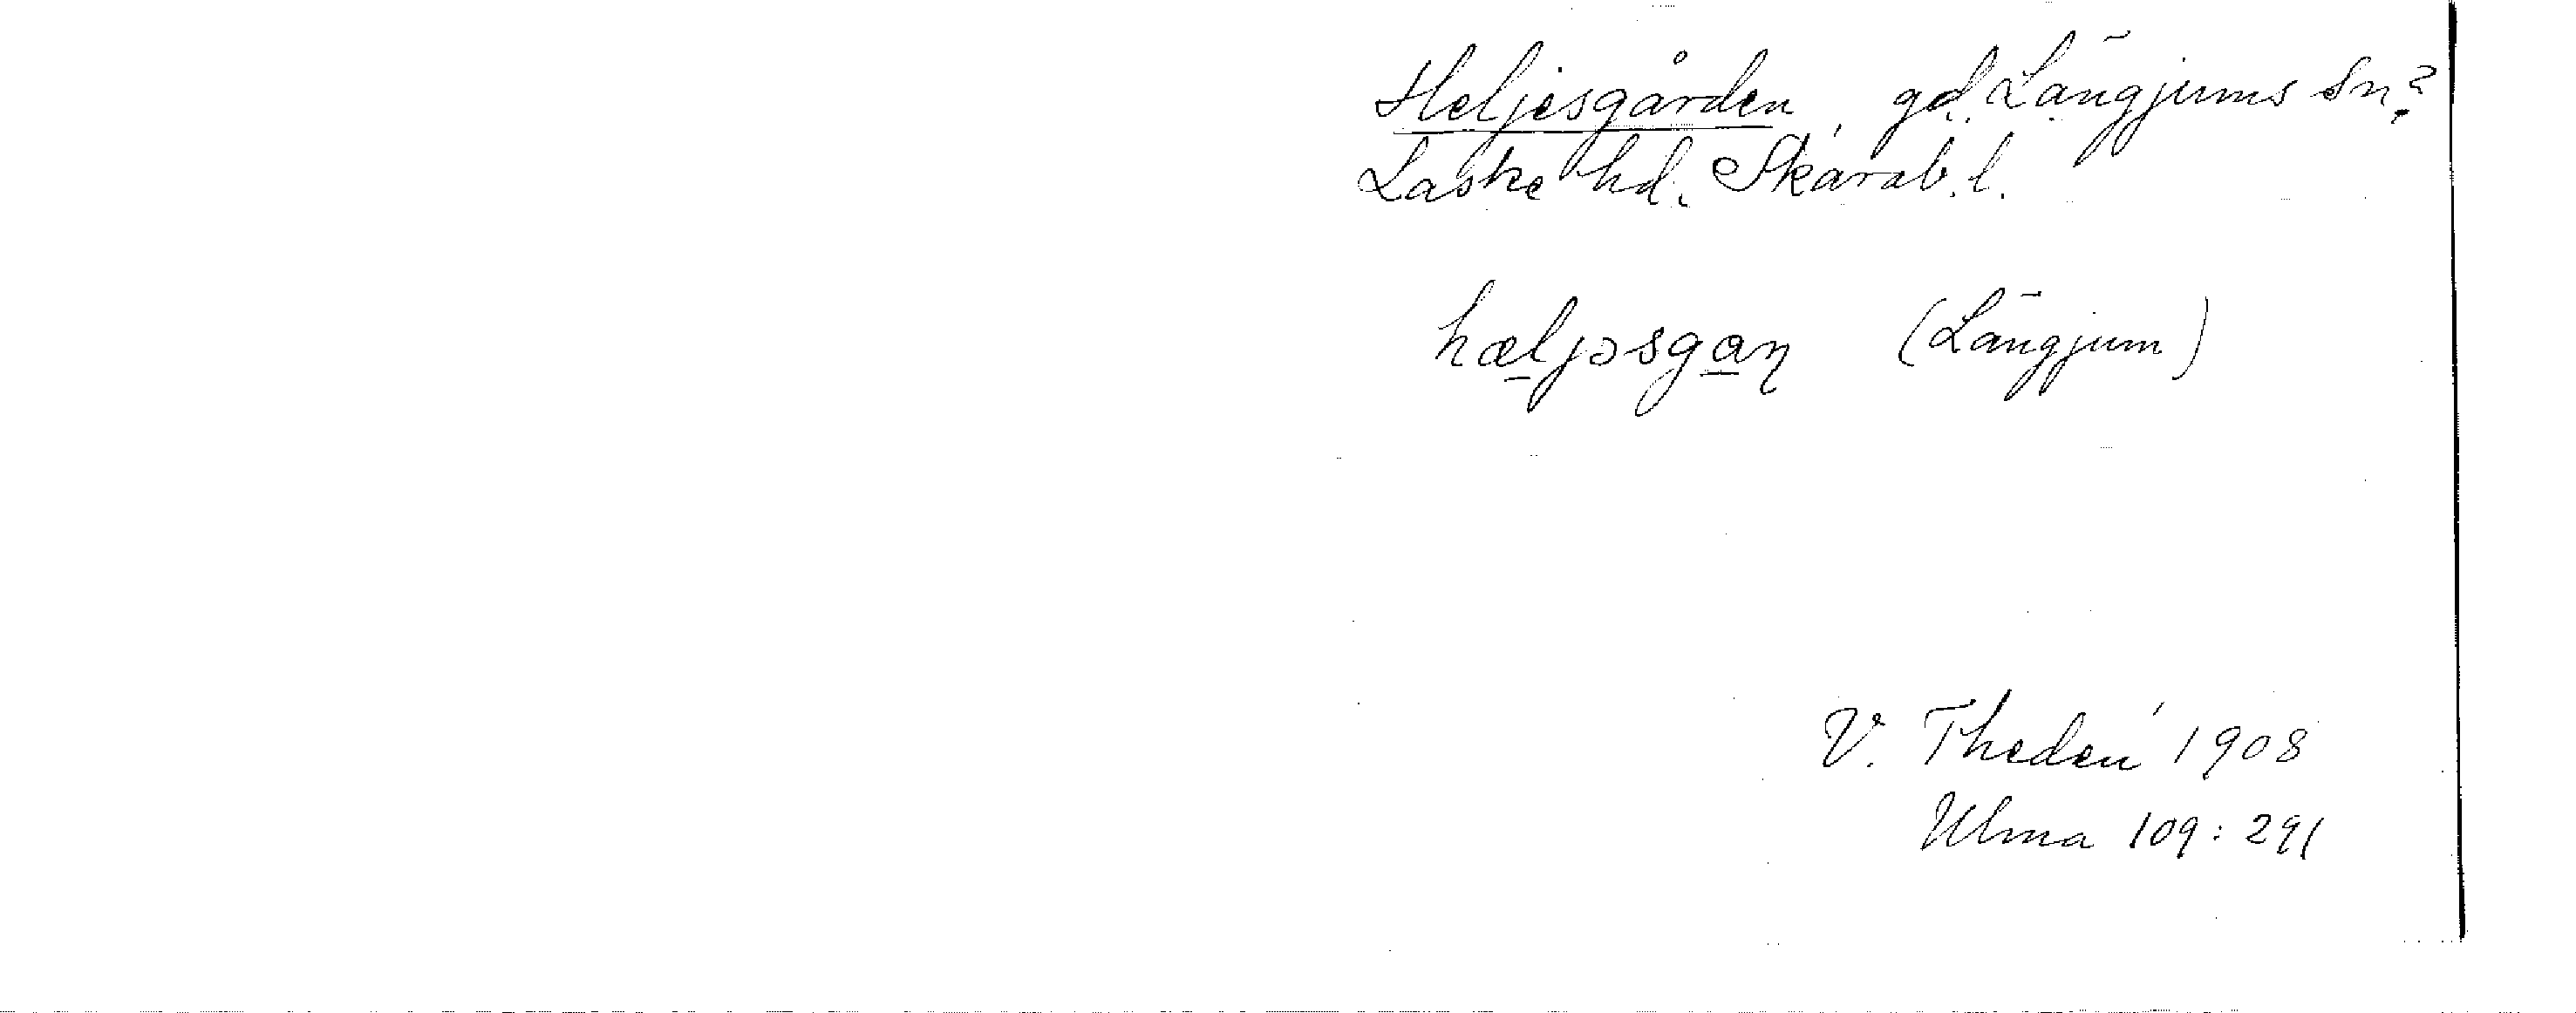 Heljesgården, gd. Längjums sn?
Laske hd. Skarab. l.
hæljəsgan̨ (Längjum)
V. Thedén 1908
Ulma 109:291